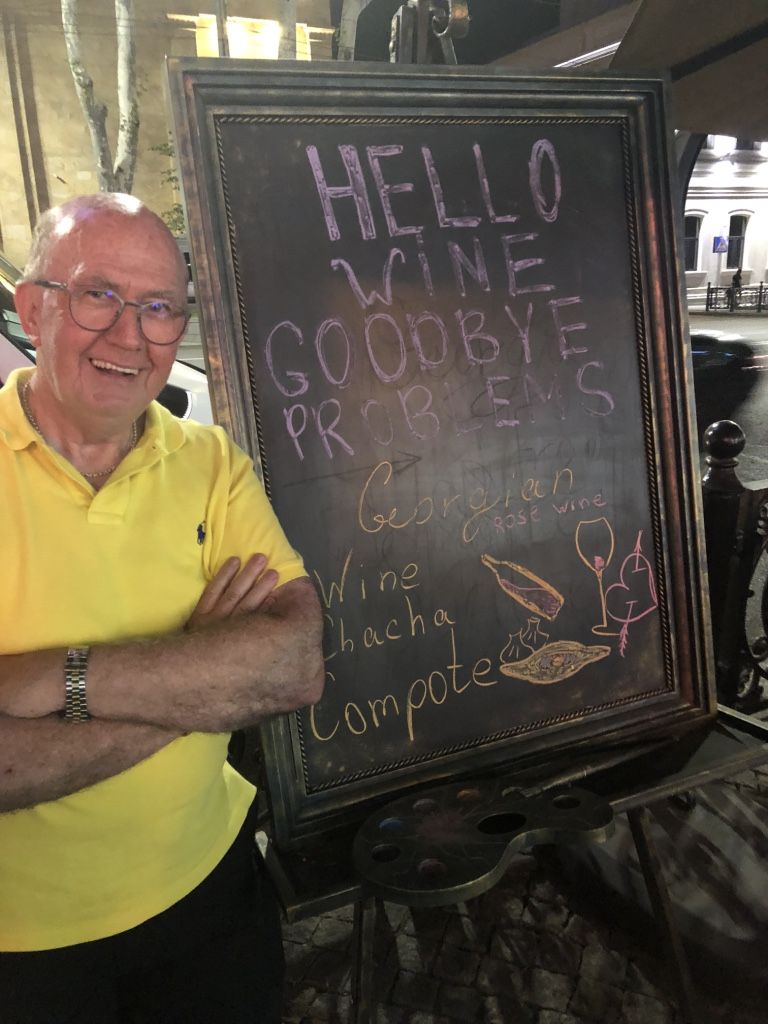 HELLO
WINE
GOODBYE
PROBLEMS
Georgian
ROSE WINE
Wine
Chacha
Compote
I
I